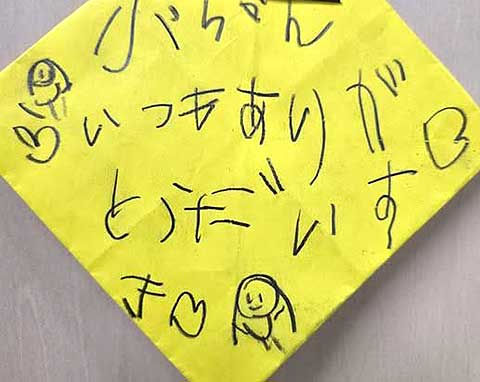 ちゃん
♡いつもありが♡
とうだいす
き♡